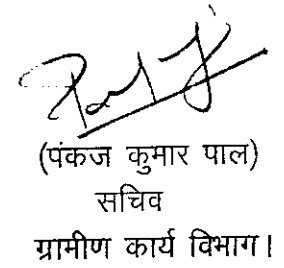 (पंकज कुमार पाल)
सचिव
ग्रामीण कार्य विभाग।